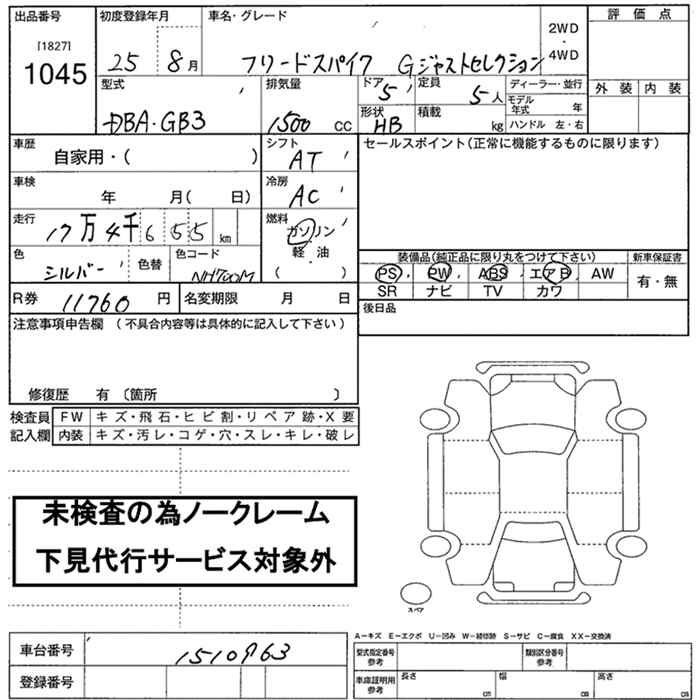 出品番号 初度登録年月 車名・グレード 2WD 評価点
[1827] ・
1045 25 8月 フリードスパイク Gジャストセレクション 4WD
型式 排気量 ドア 定員 ディーラー・並行 外装 内装
5 5人 モデル年式 年
DBA・GB3 1500 CC 形状 積載
HB kg ハンドル 左・右
車歴 シフト セールスポイント(正常に機能するものに限ります)
自家用・( ) AT
車検 冷房
年 月( 日) AC
走行 燃料
17万4千655km ガソリン
軽・油
色 色替 色コード ( ) 装備品(純品に限り丸をつけて下さい) 新車保証書
シルバー NH700M PS PW ABS エアB AW 有・無
R券 11760円 名変期限 月 日 SR ナビ TV カワ
注意事項申告欄 (不具合内容等は具体的に記入して下さい) 後日品
修復歴 有 〔箇所 〕
検査員 FW キズ・飛石・ヒビ割・リペア跡・X要
記入欄 内装 キズ・汚レ・コゲ・穴・スレ・キレ・破レ
未検査の為ノークレーム
下見代行サービス対象外
スペア
A−キズ E−エクボ U−凹み W−補修跡 S−サビ C−腐食 XX−交換済
車台番号 1510963 型式指定番号 参考 類別区分番号 参考
登録番号 車庫証明用 参考 長さ cm 幅 cm 高さ cm